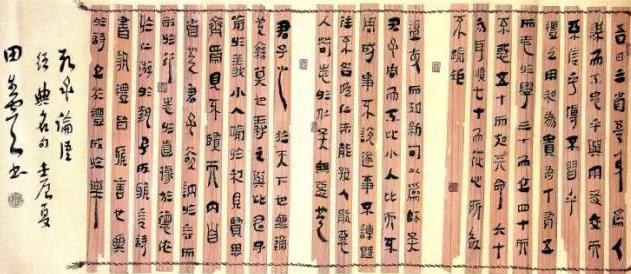 吾日三省吾身爲人
謀而不忠乎與朋友交而
不信乎傳不習乎
禮之用和爲貴吾十有五
而志於學三十而立四十而
不惑五十而知天命六十
而耳順七十而從心所欲
不踰矩
溫故而知新可以爲師矣
君子周而不比小人比而不
周成事不說遂事不諫既
往不咎唯仁者能好人能惡
人苟志於仁矣無惡也
君子之於天下也無適
也無莫也義之與比君子
喻於義小人喻於利見賢思
齊焉見不賢而內自
省也君子欲訥於言而
敏於行志於道據於德依
於仁游於藝子所雅言詩
書執禮皆雅言也興
於詩立於禮成於樂
孔子論語
經典名句壬辰夏
田書